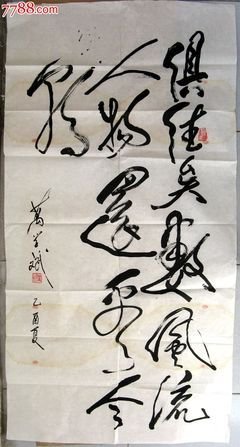 7788.com
俱往矣數風流
人物還看今
朝
萬学斌
乙酉夏